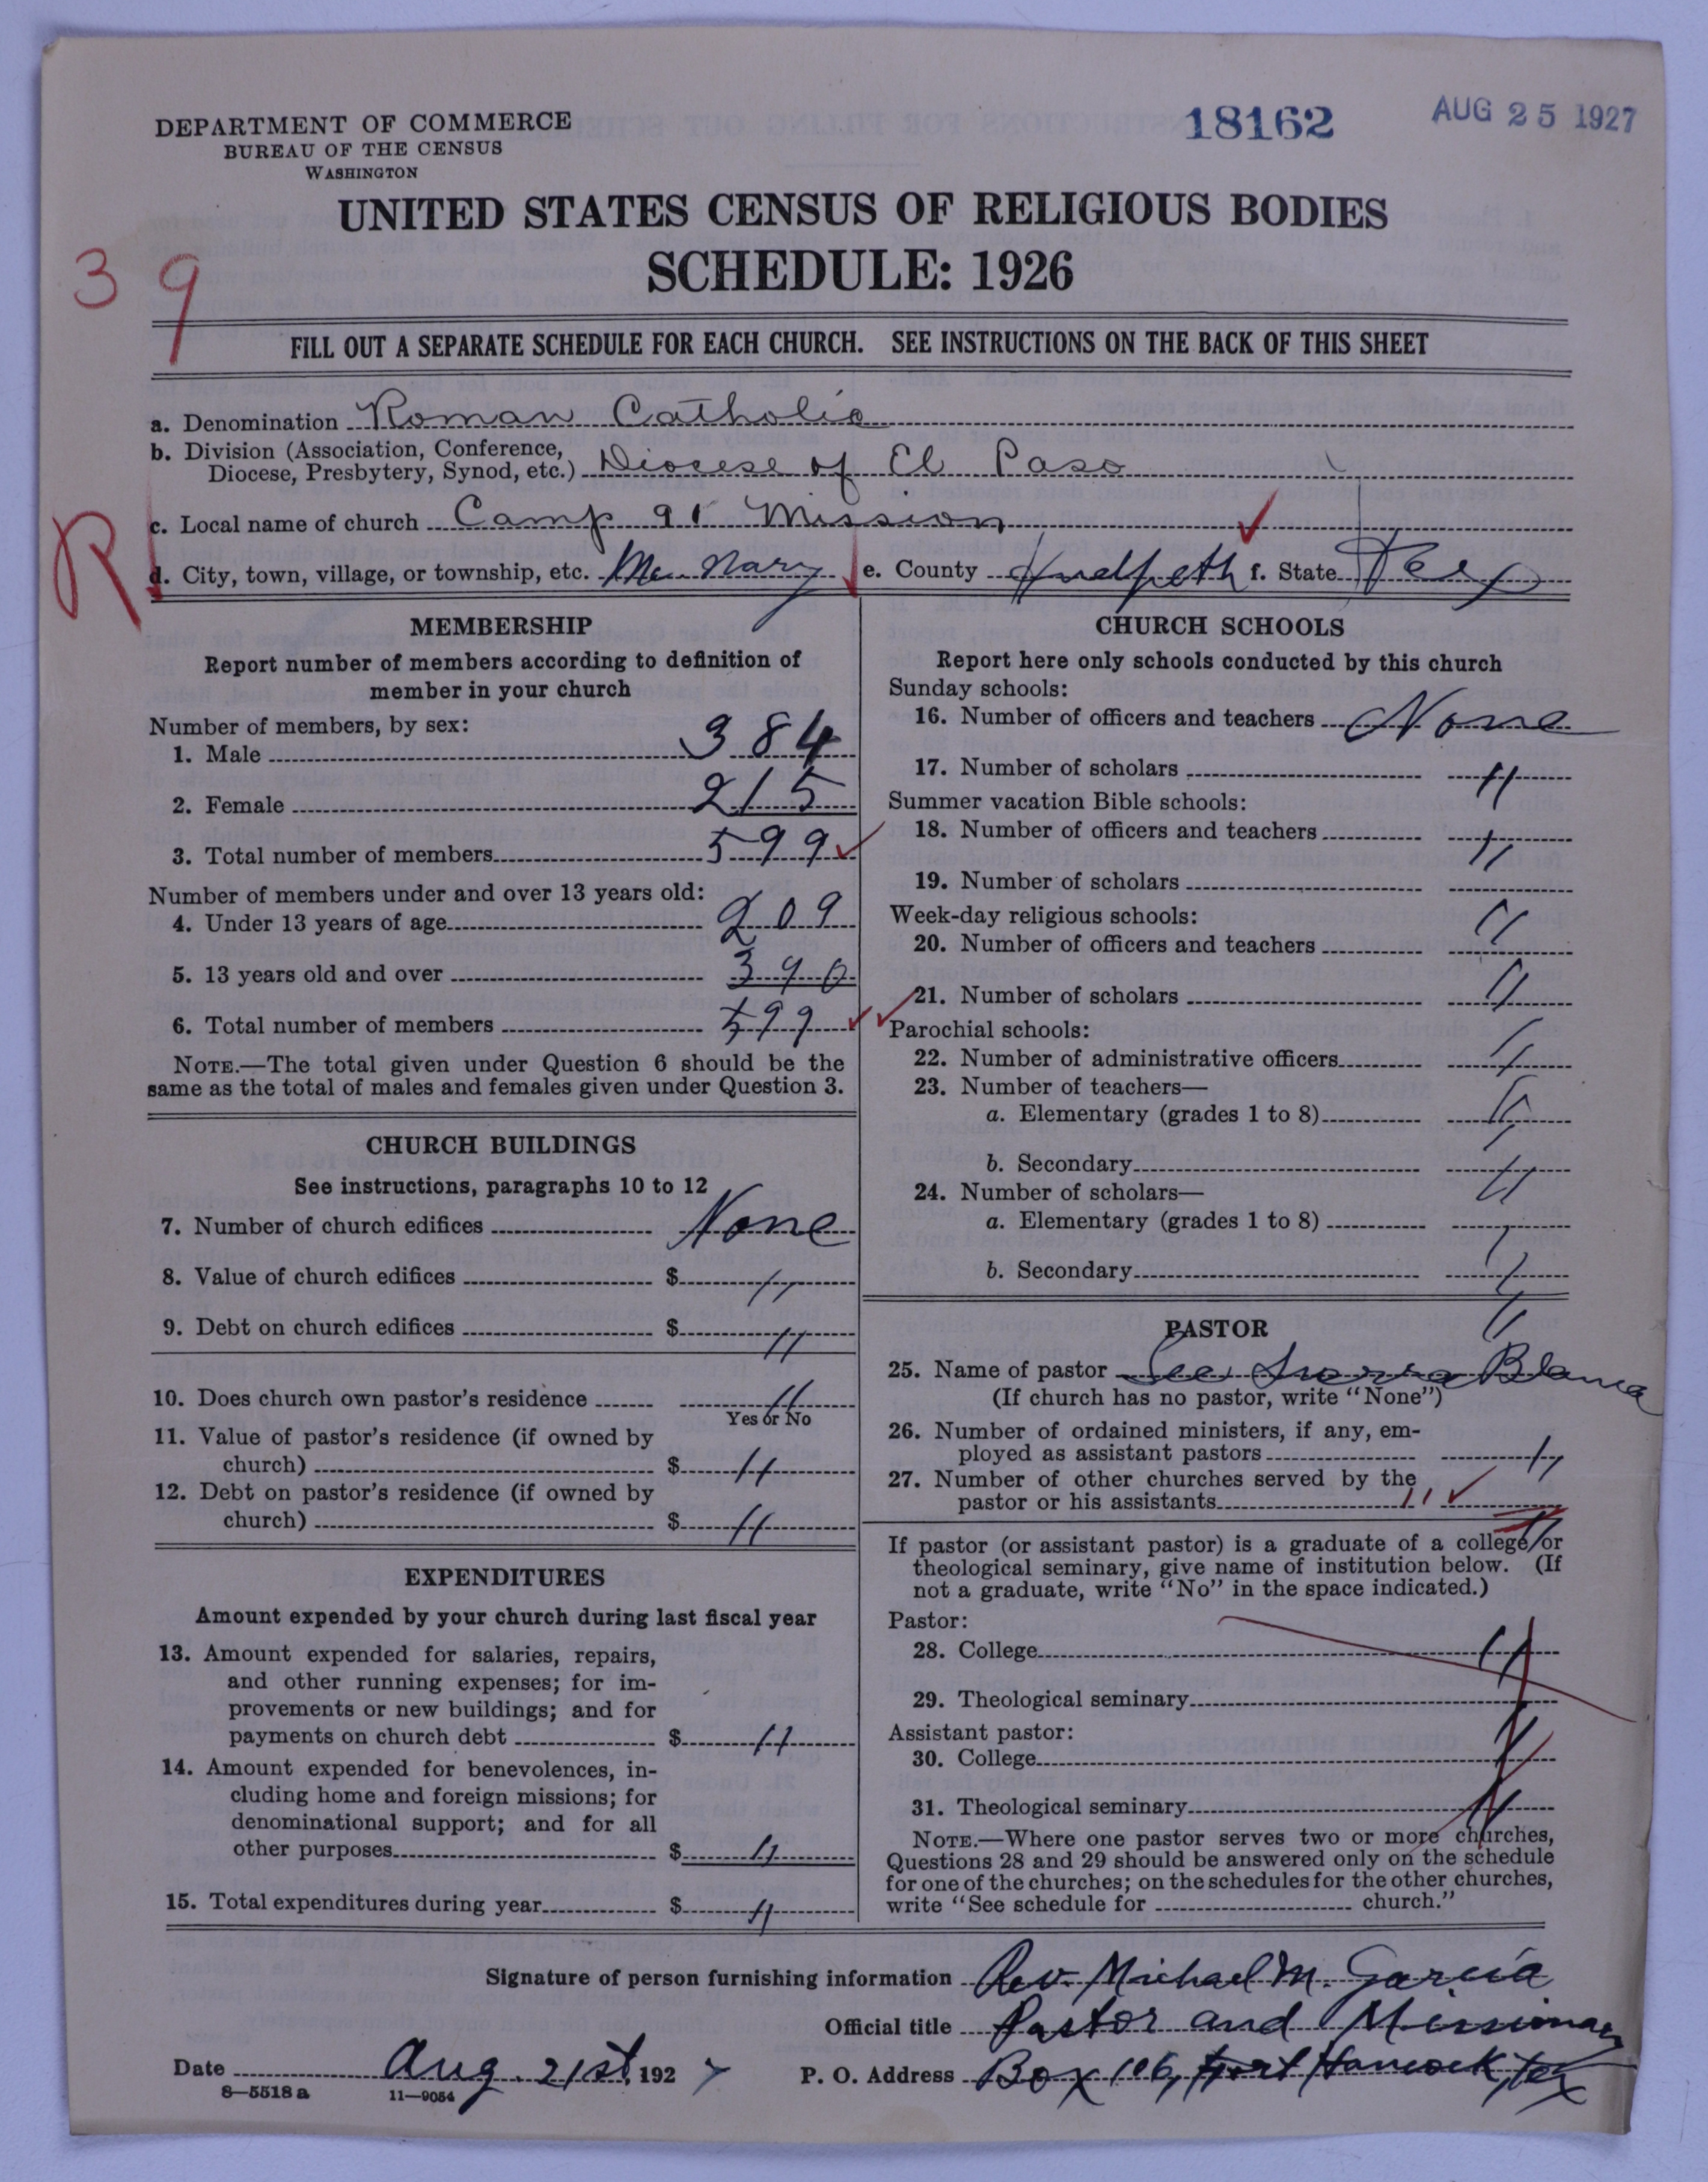 DEPARTMENT OF COMMERCE
BUREAU OF THE CENSUS
WASHINGTON
18162
AUG 25 1927
UNITED STATES CENSUS OF RELIGIOUS BODIES
SCHEDULE: 1926
39
FILL OUT A SEPARATE SCHEDULE FOR EACH CHURCH. SEE INSTRUCTIONS ON THE BACK OF THIS SHEET
a. Denomination Roman Catholic
b. Division (Association, Conference,
Diocese, Presbytery, Synod, etc.) Diocese of El Paso
c. Local name of church Camp 91 Mission
R
d. City, town, village, or township, etc. Mc. Nary e. County Hudpeth f. State Tex
MEMBERSHIP
Report number of members according to definition of
member in your church
Number of members, by sex:
1. Male 384
2. Female 215
3. Total number of members 599
Number of members under and over 13 years old:
4. Under 13 years of age 209
5. 13 years old and over 390
6. Total number of members 599
NOTE.—The total given under Question 6 should be the
same as the total of males and females given under Question 3.
CHURCH BUILDINGS
See instructions, paragraphs 10 to 12
7. Number of church edifices None
8. Value of church edifices $ "
9. Debt on church edifices $ "
10. Does church own pastor's residence "
Yes or No
11. Value of pastor's residence (if owned by
church) $ "
12. Debt on pastor's residence (if owned by
church) $ "
EXPENDITURES
Amount expended by your church during last fiscal year
13. Amount expended for salaries, repairs,
and other running expenses; for im-
provements or new buildings; and for
payments on church debt $ "
14. Amount expended for benevolences, in-
cluding home and foreign missions; for
denominational support; and for all
other purposes $ "
15. Total expenditures during year $ "
CHURCH SCHOOLS
Report here only schools conducted by this church
Sunday schools:
16. Number of officers and teachers None
17. Number of scholars "
Summer vacation Bible schools:
18. Number of officers and teachers "
19. Number of scholars
Week-day religious schools: "
20. Number of officers and teachers
21. Number of scholars "
Parochial schools:
22. Number of administrative officers "
23. Number of teachers—
a. Elementary (grades 1 to 8) "
b. Secondary "
24. Number of scholars—
a. Elementary (grades 1 to 8) "
b. Secondary "
PASTOR "
25. Name of pastor See Sierra Blanca
(If church has no pastor, write "None")
26. Number of ordained ministers, if any, em-
ployed as assistant pastors "
27. Number of other churches served by the
pastor or his assistants 11
If pastor (or assistant pastor) is a graduate of a college or
theological seminary, give name of institution below. (If
not a graduate, write "No" in the space indicated.)
Pastor:
28. College "
29. Theological seminary
Assistant pastor: "
30. College
31. Theological seminary "
NOTE.—Where one pastor serves two or more churches,
Questions 28 and 29 should be answered only on the schedule
for one of the churches; on the schedules for the other churches,
write "See schedule for church."
Signature of person furnishing information Rev. Michael M. García
Official title Pastor and Missionary
Date Aug. 21st, 1927 P. O. Address Box 106, Fort Hancock, Tex
8—5518 a 11—9054